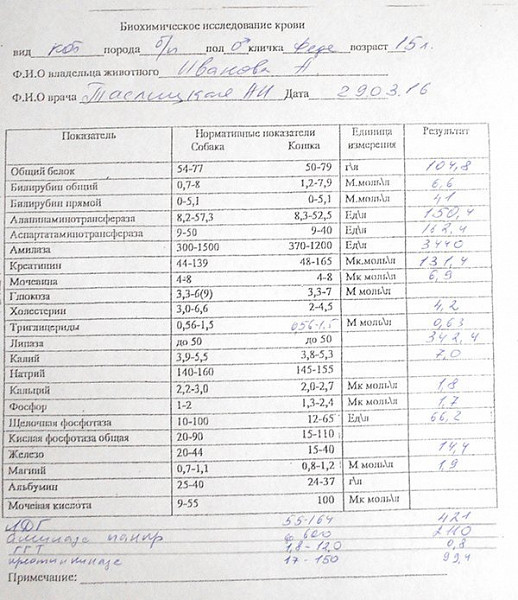 Биохимическое исследование крови
вид кот порода б/п пол ♂ кличка Федя возраст 15 л.
Ф.И.О владельца животного Иванова А
Ф.И.О врача Таслицкая АИ Дата 29.03.16
Показатель Нормативные показатели Единица Результат
Собака Кошка измерения
Общий белок 54-77 50-79 г\л 104,8
Билирубин общий 0,7-8 1,2-7,9 М.моль\л 6,6
Билирубин прямой 0-5,1 0-5,1 М.моль\л 4,1
Аланинаминотрансфераза 8,2-57,3 8,3-52,5 Ед\л 150,4
Аспартатаминотрансфераза 9-50 9-40 Ед\л 162,4
Амилаза 300-1500 370-1200 Ед\л 3440
Креатинин 44-139 48-165 Мк.моль\л 131,4
Мочевина 4-8 4-8 Мк моль\л 6,9
Глюкоза 3,3-6(9) 3,3-7 М моль\л
Холестерин 3,0-6,6 2-4,5 4,2
Триглицериды 0,56-1,5 056-1,5 М моль\л 0,63
Липаза до 50 до 50 342,4
Калий 3,9-5,5 3,8-5,3 7,0
Натрий 140-160 145-155
Кальций 2,2-3,0 2,0-2,7 Мк моль\л 1,8
Фосфор 1-2 1,3-2,4 Мк моль\л 1,7
Щелочная фосфотаза 10-100 12-65 Ед\л 66,2
Кислая фосфотаза общая 20-90 15-110
Железо 20-44 15-40 14,4
Магний 0,7-1,1 0,8-1,2 М моль\л 1,9
Альбумин 25-40 24-37 г\л
Мочевая кислота 9-55 100 Мк моль\л
ЛДГ 55-164 421
амилаза панкр 600
ГГТ 1,8-12,0 0,8
креатинкиназа 17-150 99,4
Примечание: